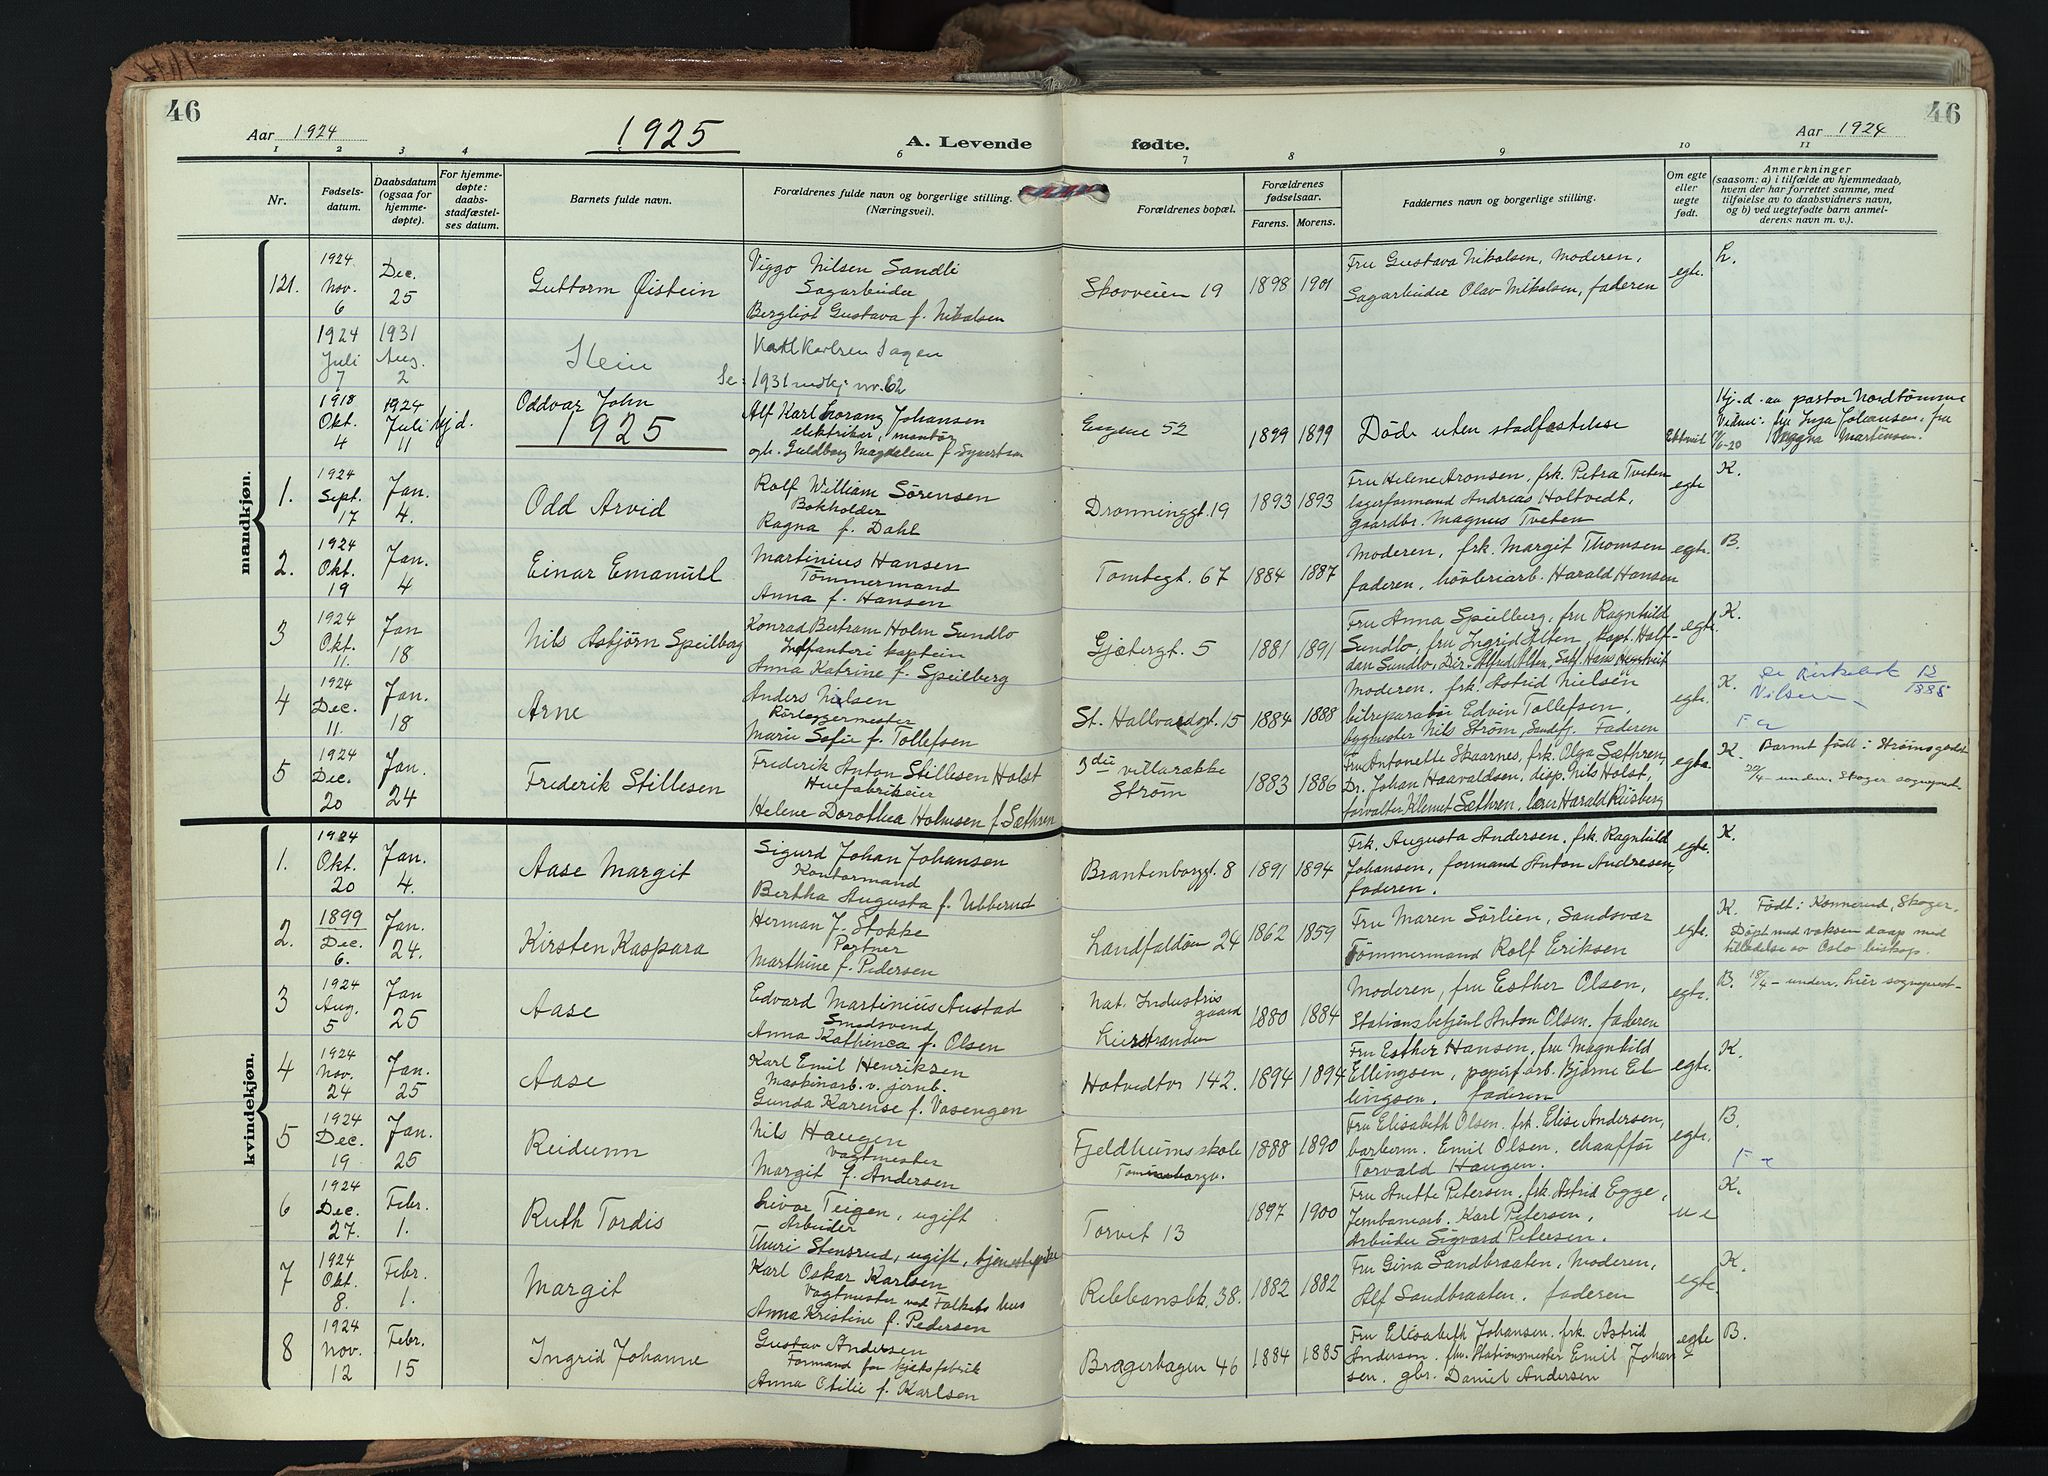 46
Aar 1924
1925
A. Levende
fødte.
Aar 1924
46
1 2 3 4 6 7 8 9 10 11
Nr.
Fødsels-
datum.
Daabsdatum
(ogsaa for
hjemme-
døpte).
For hjemme-
døpte:
daabs-
stadfæstel-
ses datum.
Barnets fulde navn.
Forældrenes fulde navn og borgerlige stilling.
(Næringsvei).
Forældrenes bopæl.
Forældrenes
fødselsaar.
Farens. Morens.
Faddernes navn og borgerlige stilling.
Om egte
eller
uegte
født.
Anmerkninger
(saasom: a) i tilfælde av hjemmedaab,
hvem der har forrettet samme, med
tilføielse av to daabsvidners navn,
og b) ved uegtefødte barn anmel-
derens navn m. v.).
mandkjøn.
121.
1924
Nov.
6
Dec.
25
Guttorm Øistein
Viggo Nilsen Sandli
Sagarbeider
Bergliot Gustava f. Nikolsen
Skovveien 19
1898 1901
Fru Gustava Nikolsen, Moderen,
Sagarbeider Olav Nikolsen, faderen
egte.
L.
1924
Juli
7
1931
Aug.
2
Stein
Se:
Karl Karlsen Sagen
1931 indkj. nr. 62
1918
Okt.
4
1924
Juli
11
Hj.d.
Oddvar John
1925
Alf Karl Lorang Johansen
elektriker, montør
og Guldborg Magdalene f. Syvertsen
Engene 52
1899 1899
Døde uten stadfæstelse
Hj.d. av pastor Nordtømme
1.
1924
Sept.
17
Jan.
4.
Odd Arvid
Rolf William Sørensen
Bokholder
Ragna f. Dahl
Dronninggt. 19
1893 1893
Fru Helene Aronsen, frk. Petra Tveten
lagerformand Andreas Holtvedt,
gaardbr. Magnus Tveten
egte
K.
2.
1924
Okt.
19
Jan.
4
Einar Emanuel
Martinius Hansen
Tømmermand
Anna f. Hansen
Tomtegt. 67
1884 1887
Moderen, frk. Margit Thomsen
faderen, høvleriarb. Harald Hansen
egte.
B.
3
1924
Okt.
11.
Jan
18
Nils Asbjørn Speilberg
Konrad Bertram Holm Sundlo
Infanteri kaptein
Anna Katrine f. Speilberg
Gjetergt. 5
1881 1891
Fru Anna Speilberg, fru Ragnhild
Sundlo, fru Ingrid Alten, kapt. Half-
dan Sundlo, Dir. Alfred Alten, Sakf. Hans
egte.
K.
4
1924
Dec.
11.
Jan.
18
Arne
Anders Nielsen
Rørleggermester
Marie Sofie f. Tollefsen
St. Hallvardsgt. 15
1884 1888
Moderen, frk. Astrid Nielsen
bilreparatør Edvin Tollefsen,
bygmester Nils Strøm, Sandsfj. Faderen
egte.
K.
se Kirkebok 12/1888
Nilsen
F a
5
1924
Dec.
20
Jan.
24
Frederik Stillesen
Frederik Anton Stillesen Holst
Huefabrikeier
Helene Dorothea Holmsen f. Sæthren
3die villarække
Strøm
1883 1886
Fru Antonette Skaarnes, frk. Olga Sæthren,
Dr. Johan Haavaldsen, disp. Nils Holst,
forvalter Klemet Sæthren, lærer Harald Riisberg
egte.
K. Barnet født i Strømsgodset
20/4 - underr. Skoger sogneprest -
kvindekjøn.
1.
1924
Okt.
20
Jan.
4.
Aase Margit
Sigurd Johan Johansen
Kontormand
Bertha Augusta f. Ubberud
Brantenborggt. 8
1891 1894
Frk. Augusta Andersen, frk. Ragnhild
Johansen, formand Anton Andresen,
faderen.
egte.
K.
2.
1899
Dec.
6.
Jan.
24.
Kirsten Kaspara
Herman J. Stokke
Portner
Marthine f. Pedersen
Landfaldøen 24
1862 1859
Fru Maren Sørlien, Sandsvær
Tømmermand Rolf Eriksen
egte.
K. Født i Konnerud, Skoger.
Døpt med voksen daap med
tilladelse av Oslo biskop.
3
1924
Aug.
5
Jan
25
Aase
Edvard Martinius Austad
Smedsvend
Anna Kathinca f. Olsen
Nat. Industris
gaard
Lierstranden
1880 1884
Moderen, fru Esther Olsen,
Stationsbetjent Anton Olsen. faderen
egte.
B. 18/4 - underr. Lier sogneprest -
4
1924
Nov.
24
Jan.
25
Aase
Karl Emil Henriksen
Maskinarb. v. jernb.
Gunda Karense f. Vasengen
Hotvedtv 142.
1894 1894
Fru Esther Hansen, fru Magnhild
Ellingsen, papirfarb. Bjarne El-
lingsen. faderen
egte.
K.
5
1924
Dec.
19
Jan.
25
Reidunn
Nils Haugen
Vagtmester
Margit f. Andersen
Fjeldheims skole
1888 1890
Fru Elisabeth Olsen. frk. Elise Andersen,
barberm. Emil Olsen. chaafför
Torvald Haugen.
egte.
B.
F a
6
1924
Dec.
27.
Febr.
1.
Ruth Tordis
Sivar Teigen, ugift
Arbeider
Thuri Stensrud, ugift, tjenestepike
Torvet 13
1897 1900
Fru Anette Petersen, frk. Astrid Egge,
Jernbanarb. Karl Petersen,
Arbeider Sigvard Petersen.
u e
K.
7
1924
Okt.
8.
Febr.
1.
Margit
Karl Oskar Karlsen
Vagtmester ved Folkets hus
Anna Kristine f. Pedersen
Rebbansbk. 38.
1882 1882
Fru Gina Sandbraaten, Moderen,
Alf Sandbraaten. faderen
egte
K.
8
1924
Nov.
12
Febr.
15
Ingrid Johanne
Gustav Andersen
Formand for kjeksfabrik
Anna Otilie f. Karlsen
Bragerhagen 46
1884 1885
Fru Elisabeth Johansen. frk. Astrid
Andersen. fhv. Stationsmester Emil Johan-
sen. gbr. Daniel Andersen
egte
B.